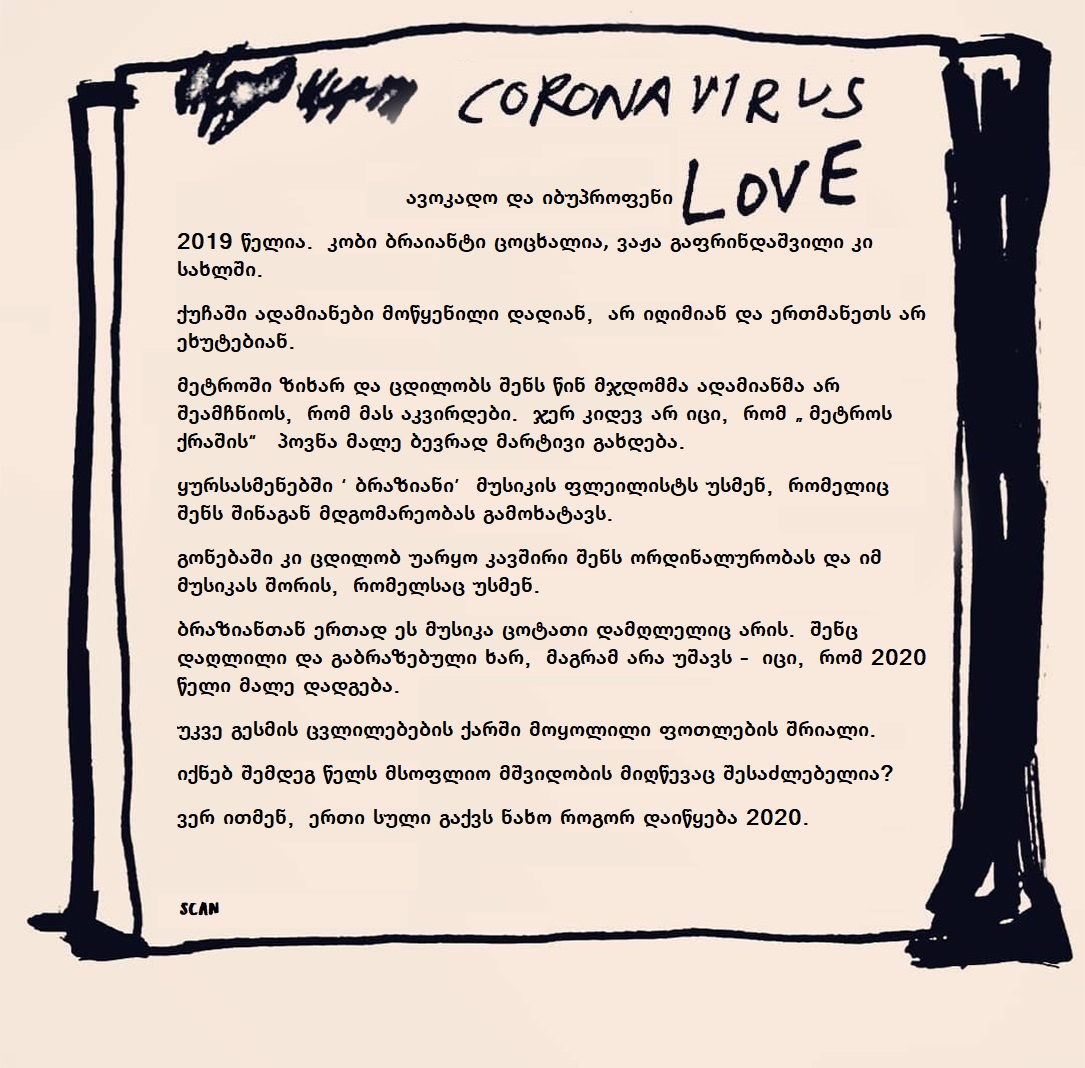 CORONAVIRUS
LOVE
ავოკადო და იბუპროფენი
2019 წელია. კობი ბრაიანტი ცოცხალია, ვაჟა გაფრინდაშვილი კი
სახლში.
ქუჩაში ადამიანები მოწყენილი დადიან, არ იღიმიან და ერთმანეთს არ
ეხუტებიან.
მეტროში ზიხარ და ცდილობს შენს წინ მჯდომმა ადამიანმა არ
შეამჩნიოს, რომ მას აკვირდები. ჯერ კიდევ არ იცი, რომ „ მეტროს
ქრაშის“ პოვნა მალე ბევრად მარტივი გახდება.
ყურსასმენებში ‘ ბრაზიანი’ მუსიკის ფლეილისტს უსმენ, რომელიც
შენს შინაგან მდგომარეობას გამოხატავს.
გონებაში კი ცდილობ უარყო კავშირი შენს ორდინალურობას და იმ
მუსიკას შორის, რომელსაც უსმენ.
ბრაზიანთან ერთად ეს მუსიკა ცოტათი დამღლელიც არის. შენც
დაღლილი და გაბრაზებული ხარ, მაგრამ არა უშავს - იცი, რომ 2020
წელი მალე დადგება.
უკვე გესმის ცვლილებების ქარში მოყოლილი ფოთლების შრიალი.
იქნებ შემდეგ წელს მსოფლიო მშვიდობის მიღწევაც შესაძლებელია?
ვერ ითმენ, ერთი სული გაქვს ნახო როგორ დაიწყება 2020.
SCAN